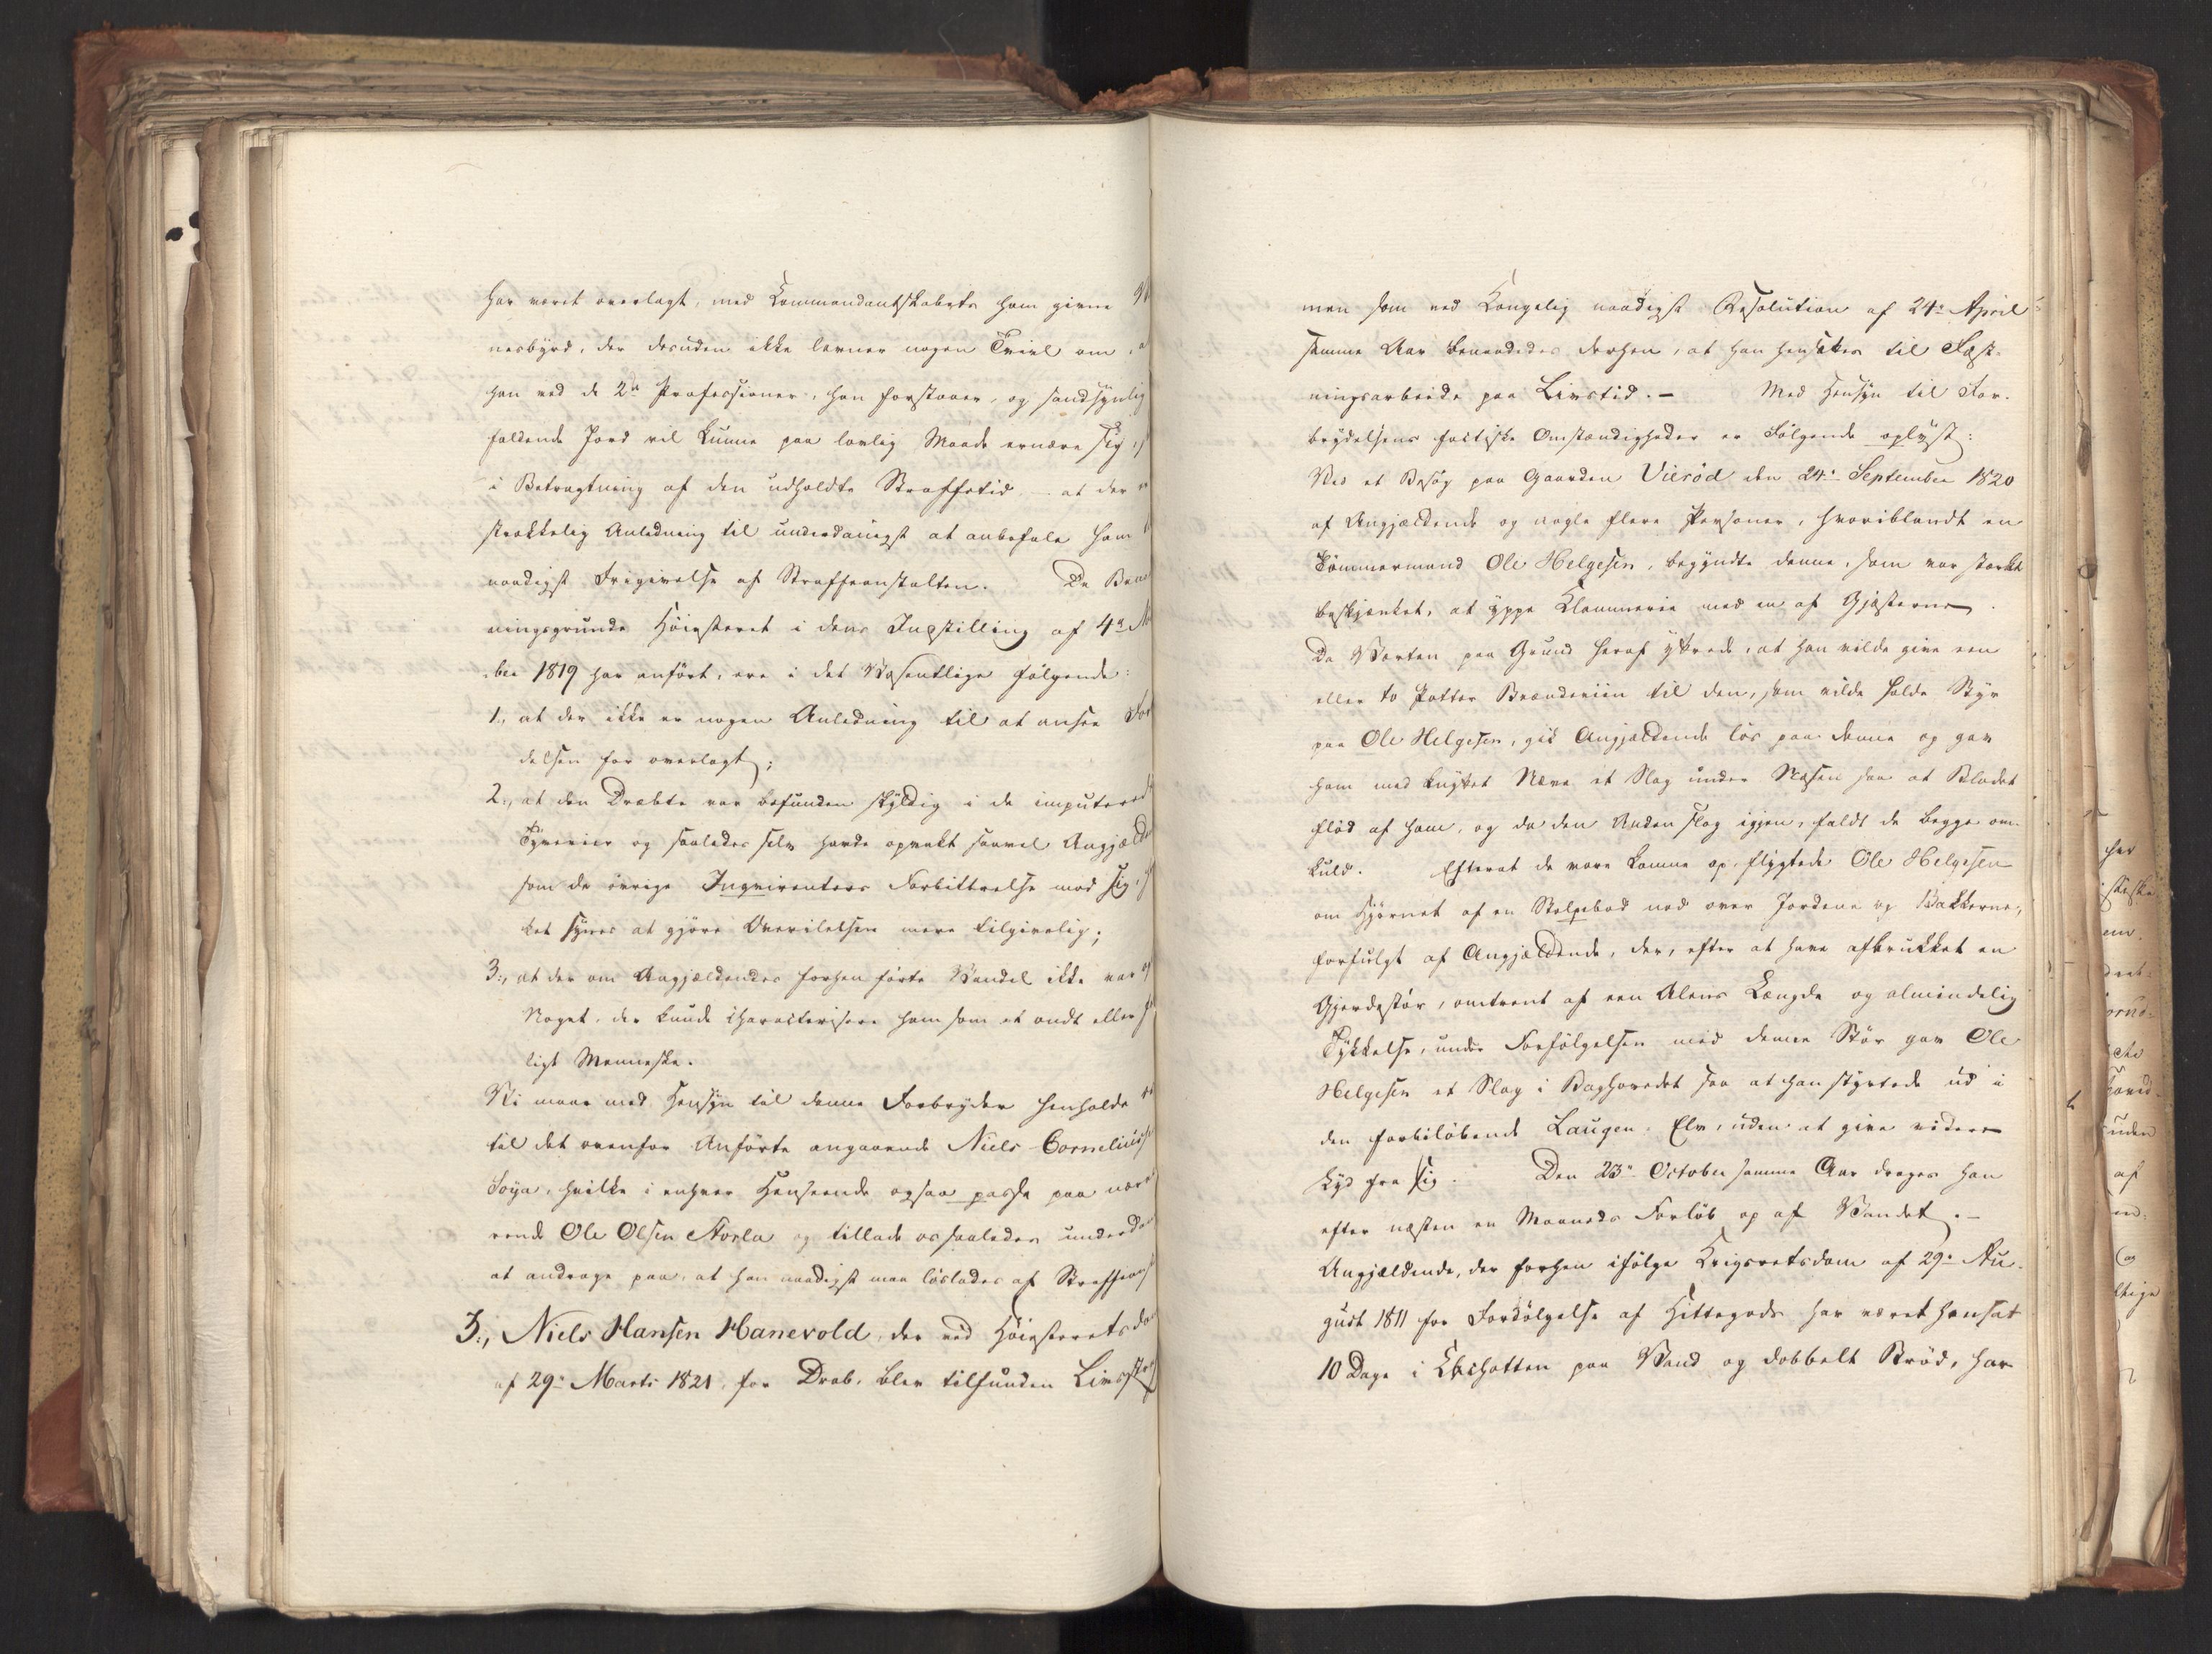 har været overlagt, med Kommandantskabets ham givne
nesbyrd, der desuden ikke levner nogen Tvivl om, a
han ved de 2de Professioner, han forstaaer, og sandsynlig
faldende Jord vil kunne paa lovlig Maade ernære sig,
i Betragtning af den udholdte Straffetid – at der
strækkelig Anledning til underdanigst at anbefale ham
naadigst Frigivelse af Straffeanstalten. De Ben
ningsgrunde Høiesteret i dens Indstilling af 4de
ber 1819 har anført, ere i det Væsentlige følgende:
1., at der ikke er nogen Anledning til at ansee For
delsen for overlagt;
2., at den Dræbte var befunden skyldig i de imputerede
Tyverier og saaledes selv havde opvakt saavel Angjælde
som de øvrige Inqvirenters Forbittrelse mod sig,
ket synes at gjøre Overilelsen mere tilgivelig;
3., at der om Angjældendes forhen førte Vandel ikke var
Noget, der kunde characterisere ham som et ondt eller
ligt Menneske.
Vi maae med Hensyn til denne Forbryder henholde
til det ovenfor Anførte angaaende Niels Cornelius
Soya, hvilke i enhver Henseende ogsaa passe paa nær
rende Ole Olsen Storla og tillade os saaledes underda
at andrage paa, at han naadigst maa løslades af Straffeans
3., Niels Hansen Hanevold, der ved Høiesteretsdo
af 29de Marts 1821, for Drab, blev tilfunden Livsstra
men som ved Kongelig naadigst Resolution af 24de April
samme Aar benaadedes derhen, at han hensættes til Fæst-
ningsarbeide paa Livstid. – Med Hensyn til For-
brydelsens factiske Omstændigheder er Følgende oplyst:
Ved et Besøg paa Gaarden Vierød den 24de September 1820
af Angjældende og nogle flere Personer, hvoriblandt en
Tømmermand Ole Helgesen, begyndte denne, som var stærkt
beskjænket, at yppe Klammerie med en af Gjæsterne.
Da Verten paa Grund heraf yttrede, at han vilde give een
eller to Potter Brændeviin til den, som vilde holde Styr
paa Ole Helgesen, gik Angjældende løs paa denne og gav
ham med knyttet Næve et Slag under Næsen saa at Blodet
flød af ham, og da den Anden slog igjen, faldt de begge om-
kuld. Efterat de vare komne op, flygtede Ole Helgesen
om Hjørnet af en Stolpebod ned over Jordene og Bakkerne,
forfulgt af Angjældende, der, efter at have afbrukket en
Gjerdestør, omtrent af een Alens Længde og almindelig
Tykkelse, under Forfølgelsen med denne Stør gav Ole
Helgesen et Slag i Baghovedet saa at han styrtede ud i
den forbiløbende Laugen-Elv, uden at give videre
Lyd fra sig. Den 23de October samme Aar droges han
efter næsten en Maaneds Forløb op af Vandet. –
Angjældende, der forhen ifølge Krigsretsdom af 29de Au-
gust 1811 for Fordølgelse af Hittegods har været hensat
10 Dage i Cachotten paa Vand og dobbelt Brød, har